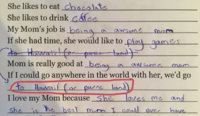 She likes to eat chocolate
She likes to drink coffee
My Mom's job is being a awsome mom
If she had time, she would like to play games
to Hawaii (or guess land)
Mom is really good at being a awsome mom
If I could go anywhere in the world with her, we'd go
to Hawaii (or guess land)
I love my Mom because she loves me and
she is the best mom I could ever have